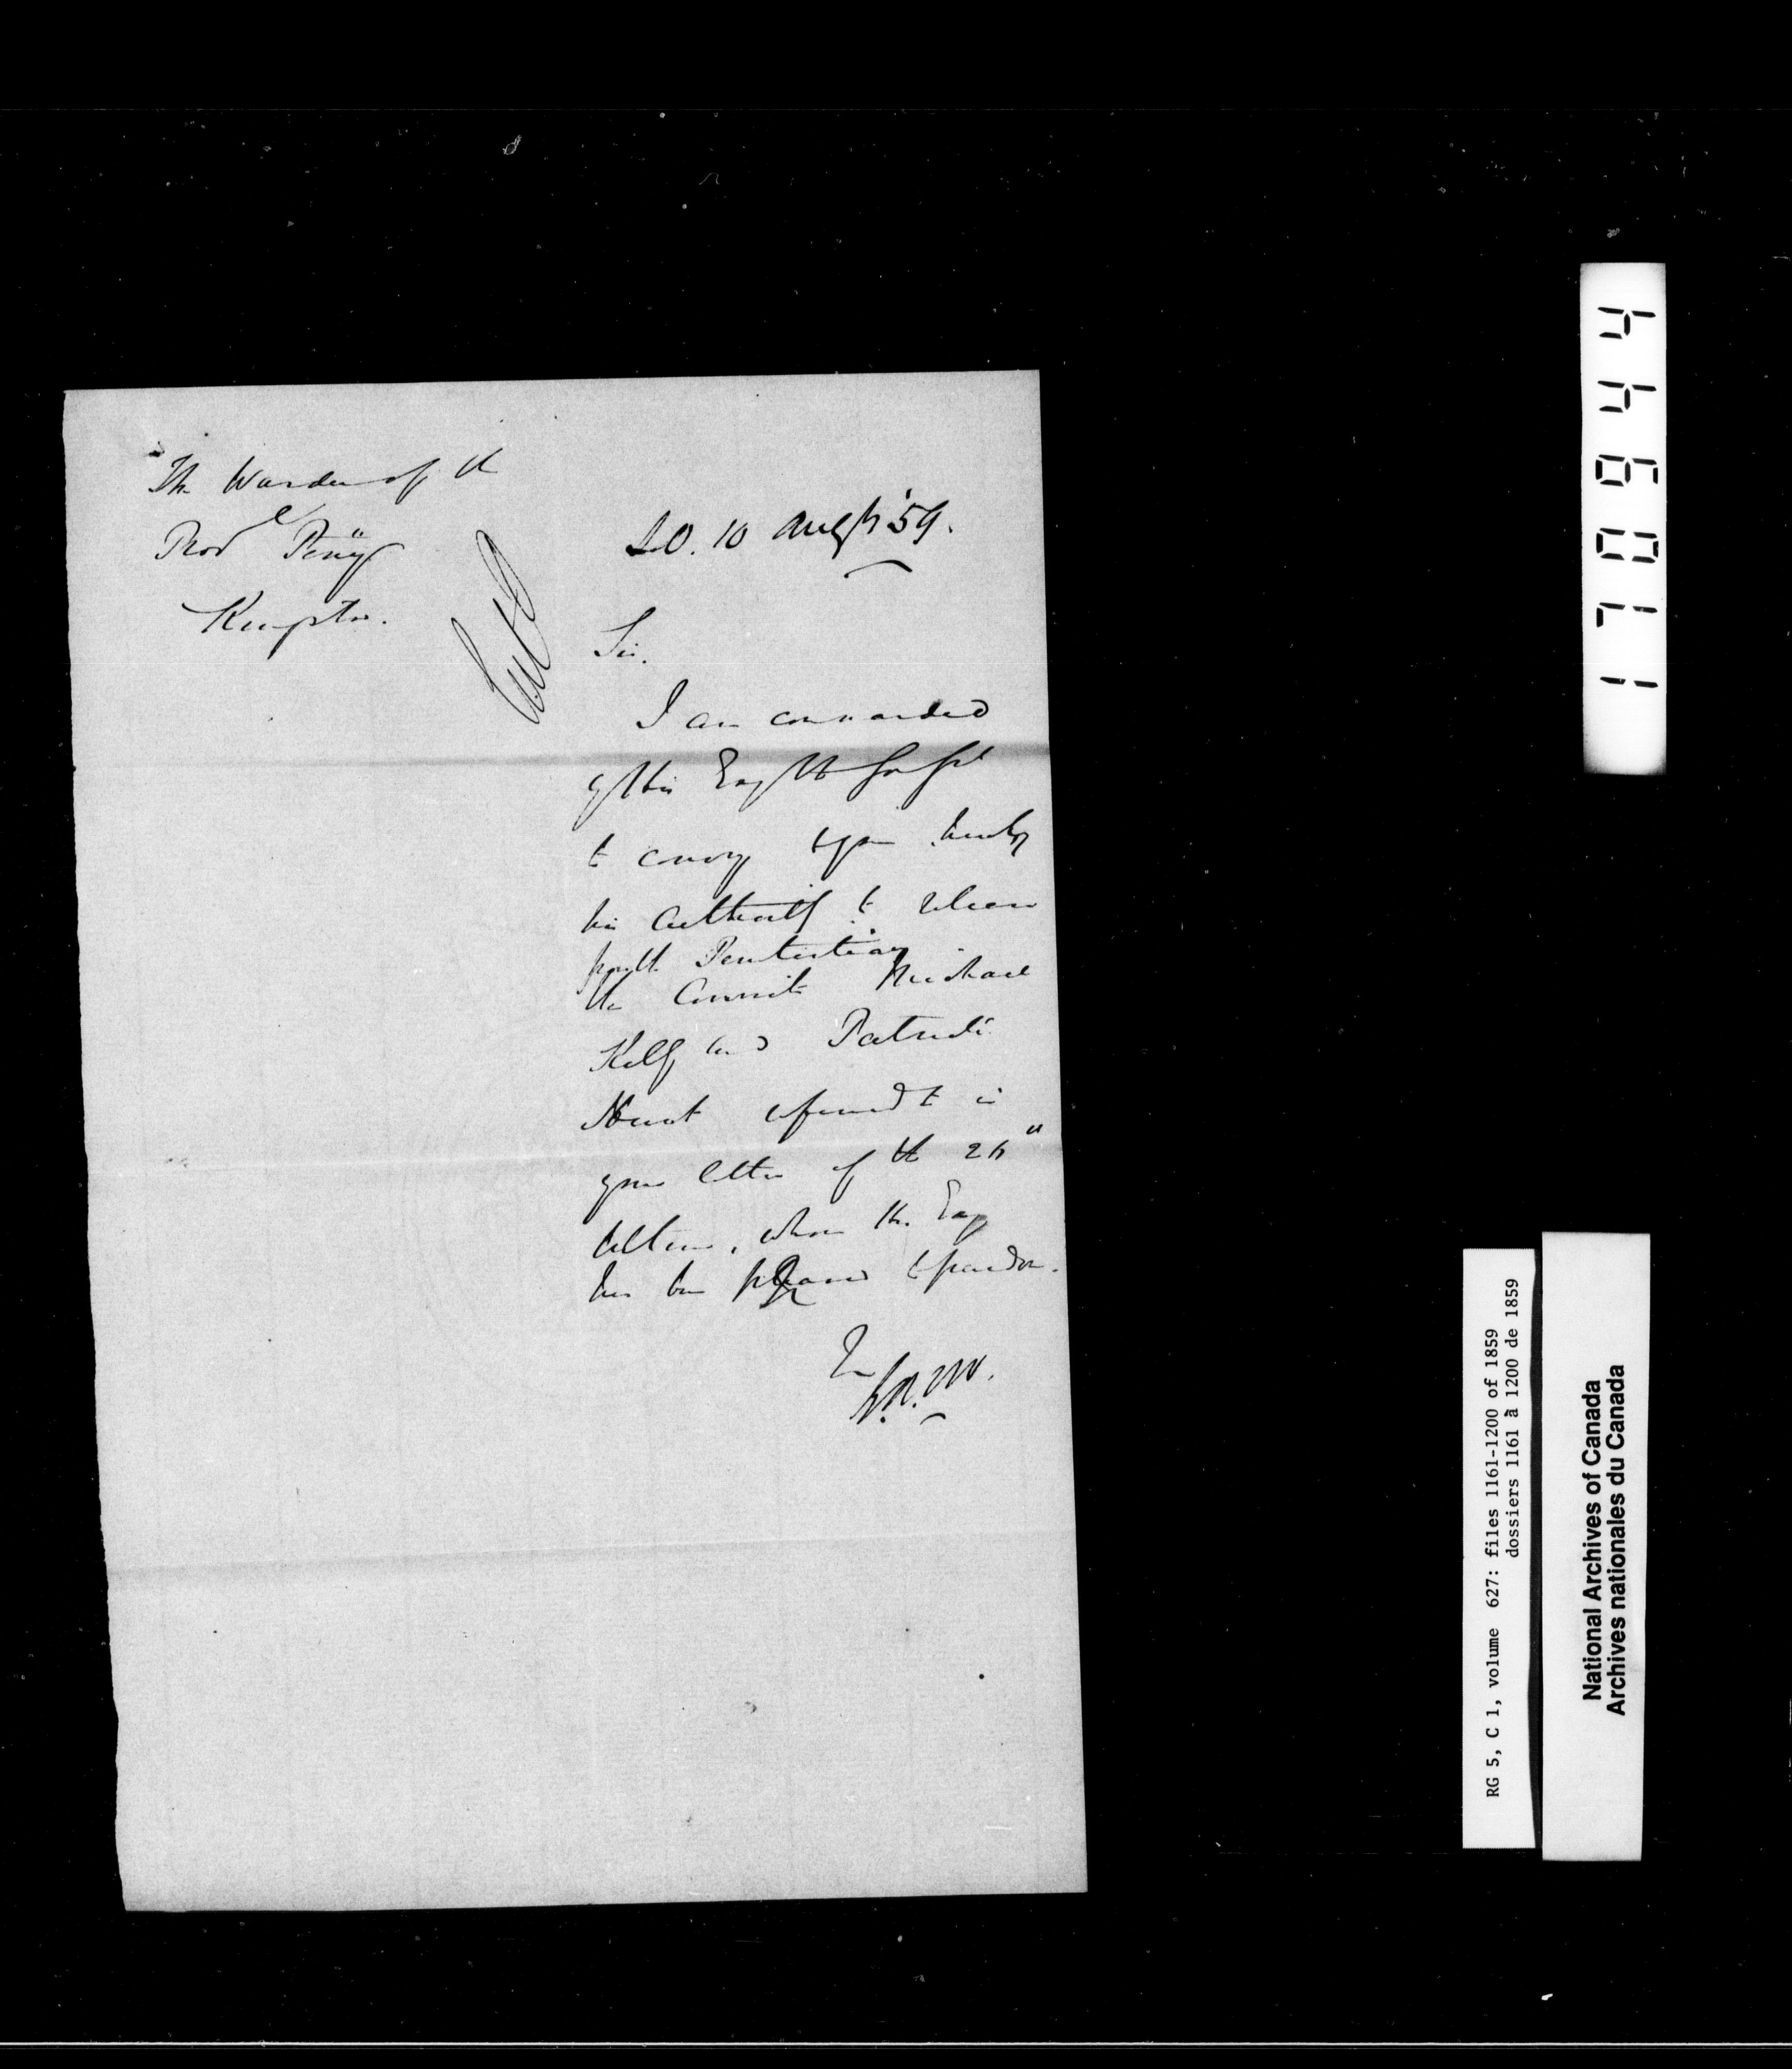 The Warden of the
Prov^l Peny
Kingston.
Ent^d
S.O. 10 Augt '59.
Sir.
I am commanded
by His Excy the Gov Genl
to convey to you hereby
his authority to release
from the Penitentiary
the Convicts Michael
Kelly and Patrick
referred to in
your letter of the 26"
Ultimo, whom His Excy
has been pleased to pardon.
174944
RG 5, C 1, volume 627: files 1161-1200 of 1859
dossiers 1161 à 1200 de 1859
National Archives of Canada
Archives nationales du Canada